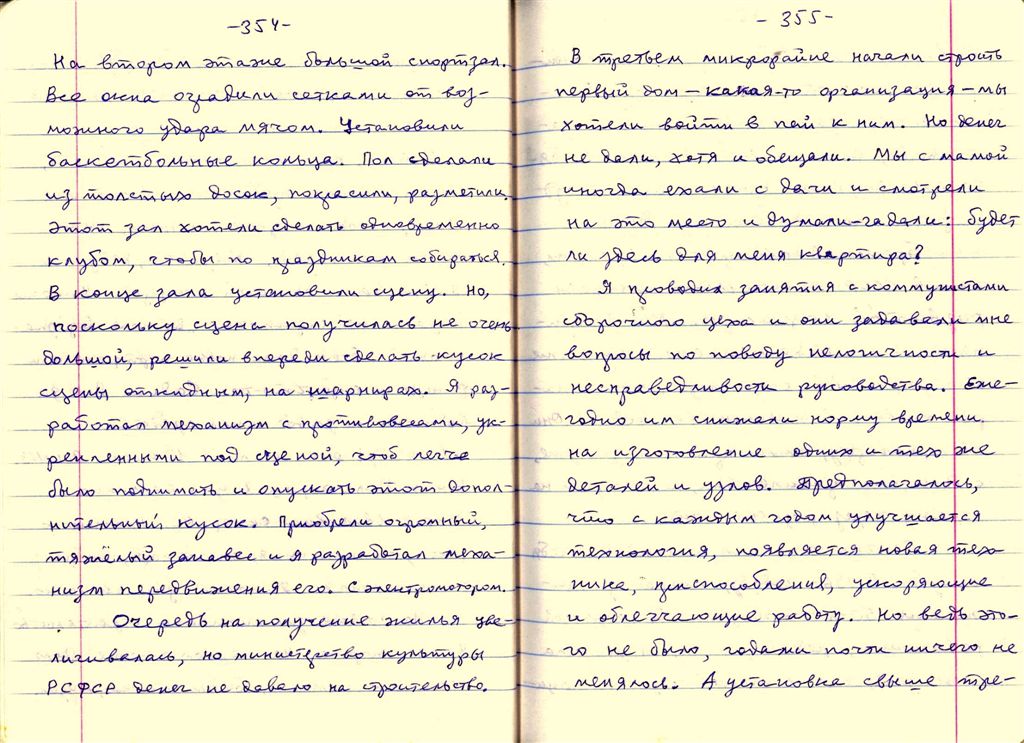 -354-
На втором этаже большой спортзал.
Все окна оградили сетками от воз-
можного удара мячом. Установили
баскетбольные кольца. Пол сделали
из толстых досок, покрасили, разметили.
Этот зал хотели сделать одновременно
клубом, чтобы по праздникам собираться.
В конце зала установили сцену. Но,
поскольку сцена получилась не очень
большой, решили впереди сделать кусок
сцены откидным, на шарнирах. Я раз-
работал механизм с противовесами, ук-
репленными под сценой, чтоб легче
было поднимать и опускать этот допол-
нительный кусок. Приобрели огромный,
тяжёлый занавес и я разработал меха-
низм передвижения его. С электромотором.
Очередь на получение жилья уве-
личивалась, но министерство культуры
РСФСР денег не давало на строительство.
-355-
В третьем микрорайне начали строить
первый дом - какая-то организация - мы
хотели войти в пай к ним. Но денег
не дали, хотя и обещали. Мы с мамой
иногда ехали с дачи и смотрели
на это место и думали-гадали: будет
ли здесь для меня квартира?
Я проводил занятия с коммунистами
сборочного цеха и они задавали мне
вопросы по поводу нелогичности и
несправедливости руководства. Еже-
годно им снижали норму времени
на изготовление одних и тех же
деталей и узлов. Предполагалось,
что с каждым годом улучшается
технология, появляется новая тех-
ника, приспособления, ускоряющие
и облегчающие работу. Но ведь это-
го не было, годами почти ничего не
менялось. А установка свыше тре-